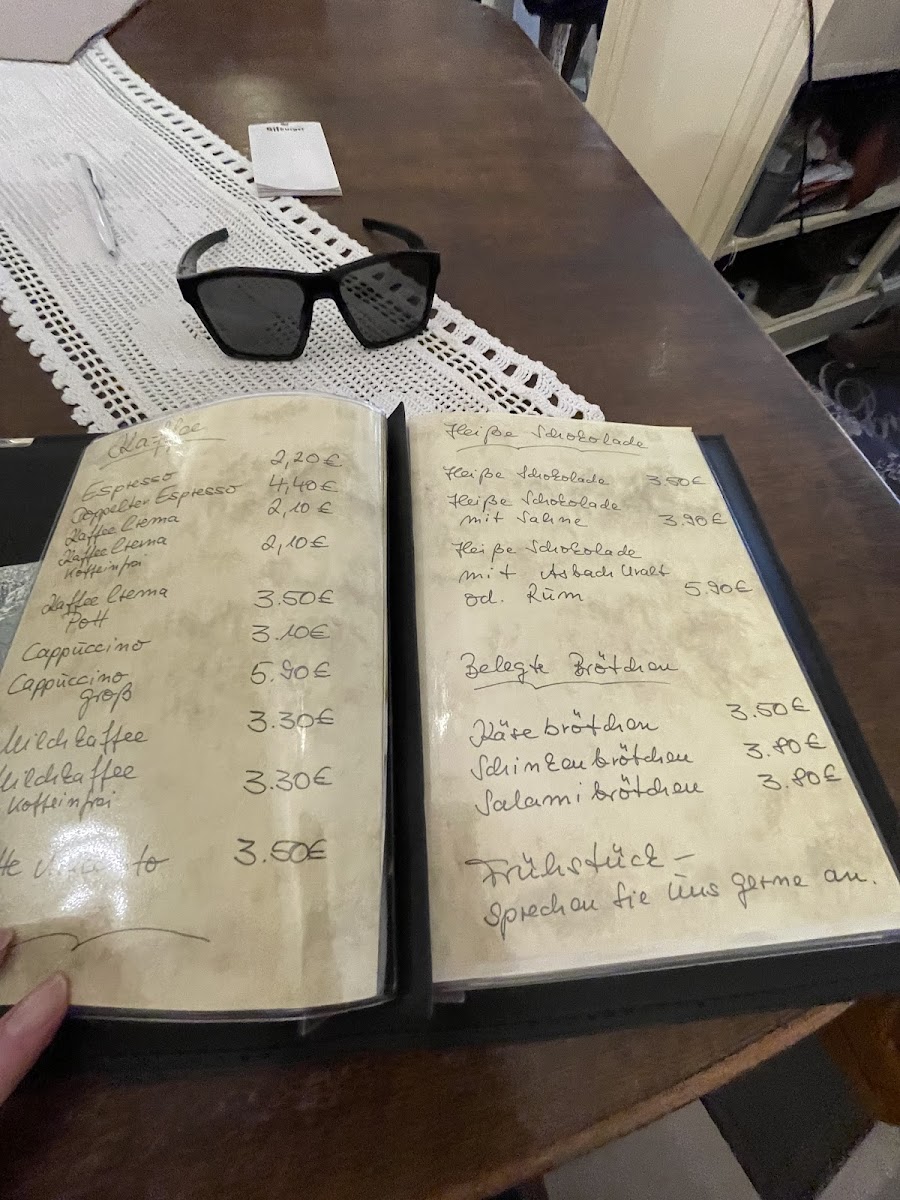 Bitburger
Kaffee
Espresso 2,20€
Doppelter Espresso 4,40€
Kaffee Crema 2,10€
Kaffee Crema 2,10€
Koffeinfrei
Kaffee Crema 3.50€
Pott
Cappuccino 3.10€
Cappuccino 5.90€
groß
Milchkaffee 3.30€
Milchkaffee 3.30€
Koffeinfrei
3.50€
Heiße Schokolade
Heiße Schokolade 3.50€
Heiße Schokolade
mit Sahne 3.90€
Heiße Schokolade
mit Asbach Uralt
od. Rum 5.90€
Belegte Brötchen
Käsebrötchen 3.50€
Schinkenbrötchen 3.80€
Salamibrötchen 3.80€
Frühstück –
Sprechen Sie uns gerne an.